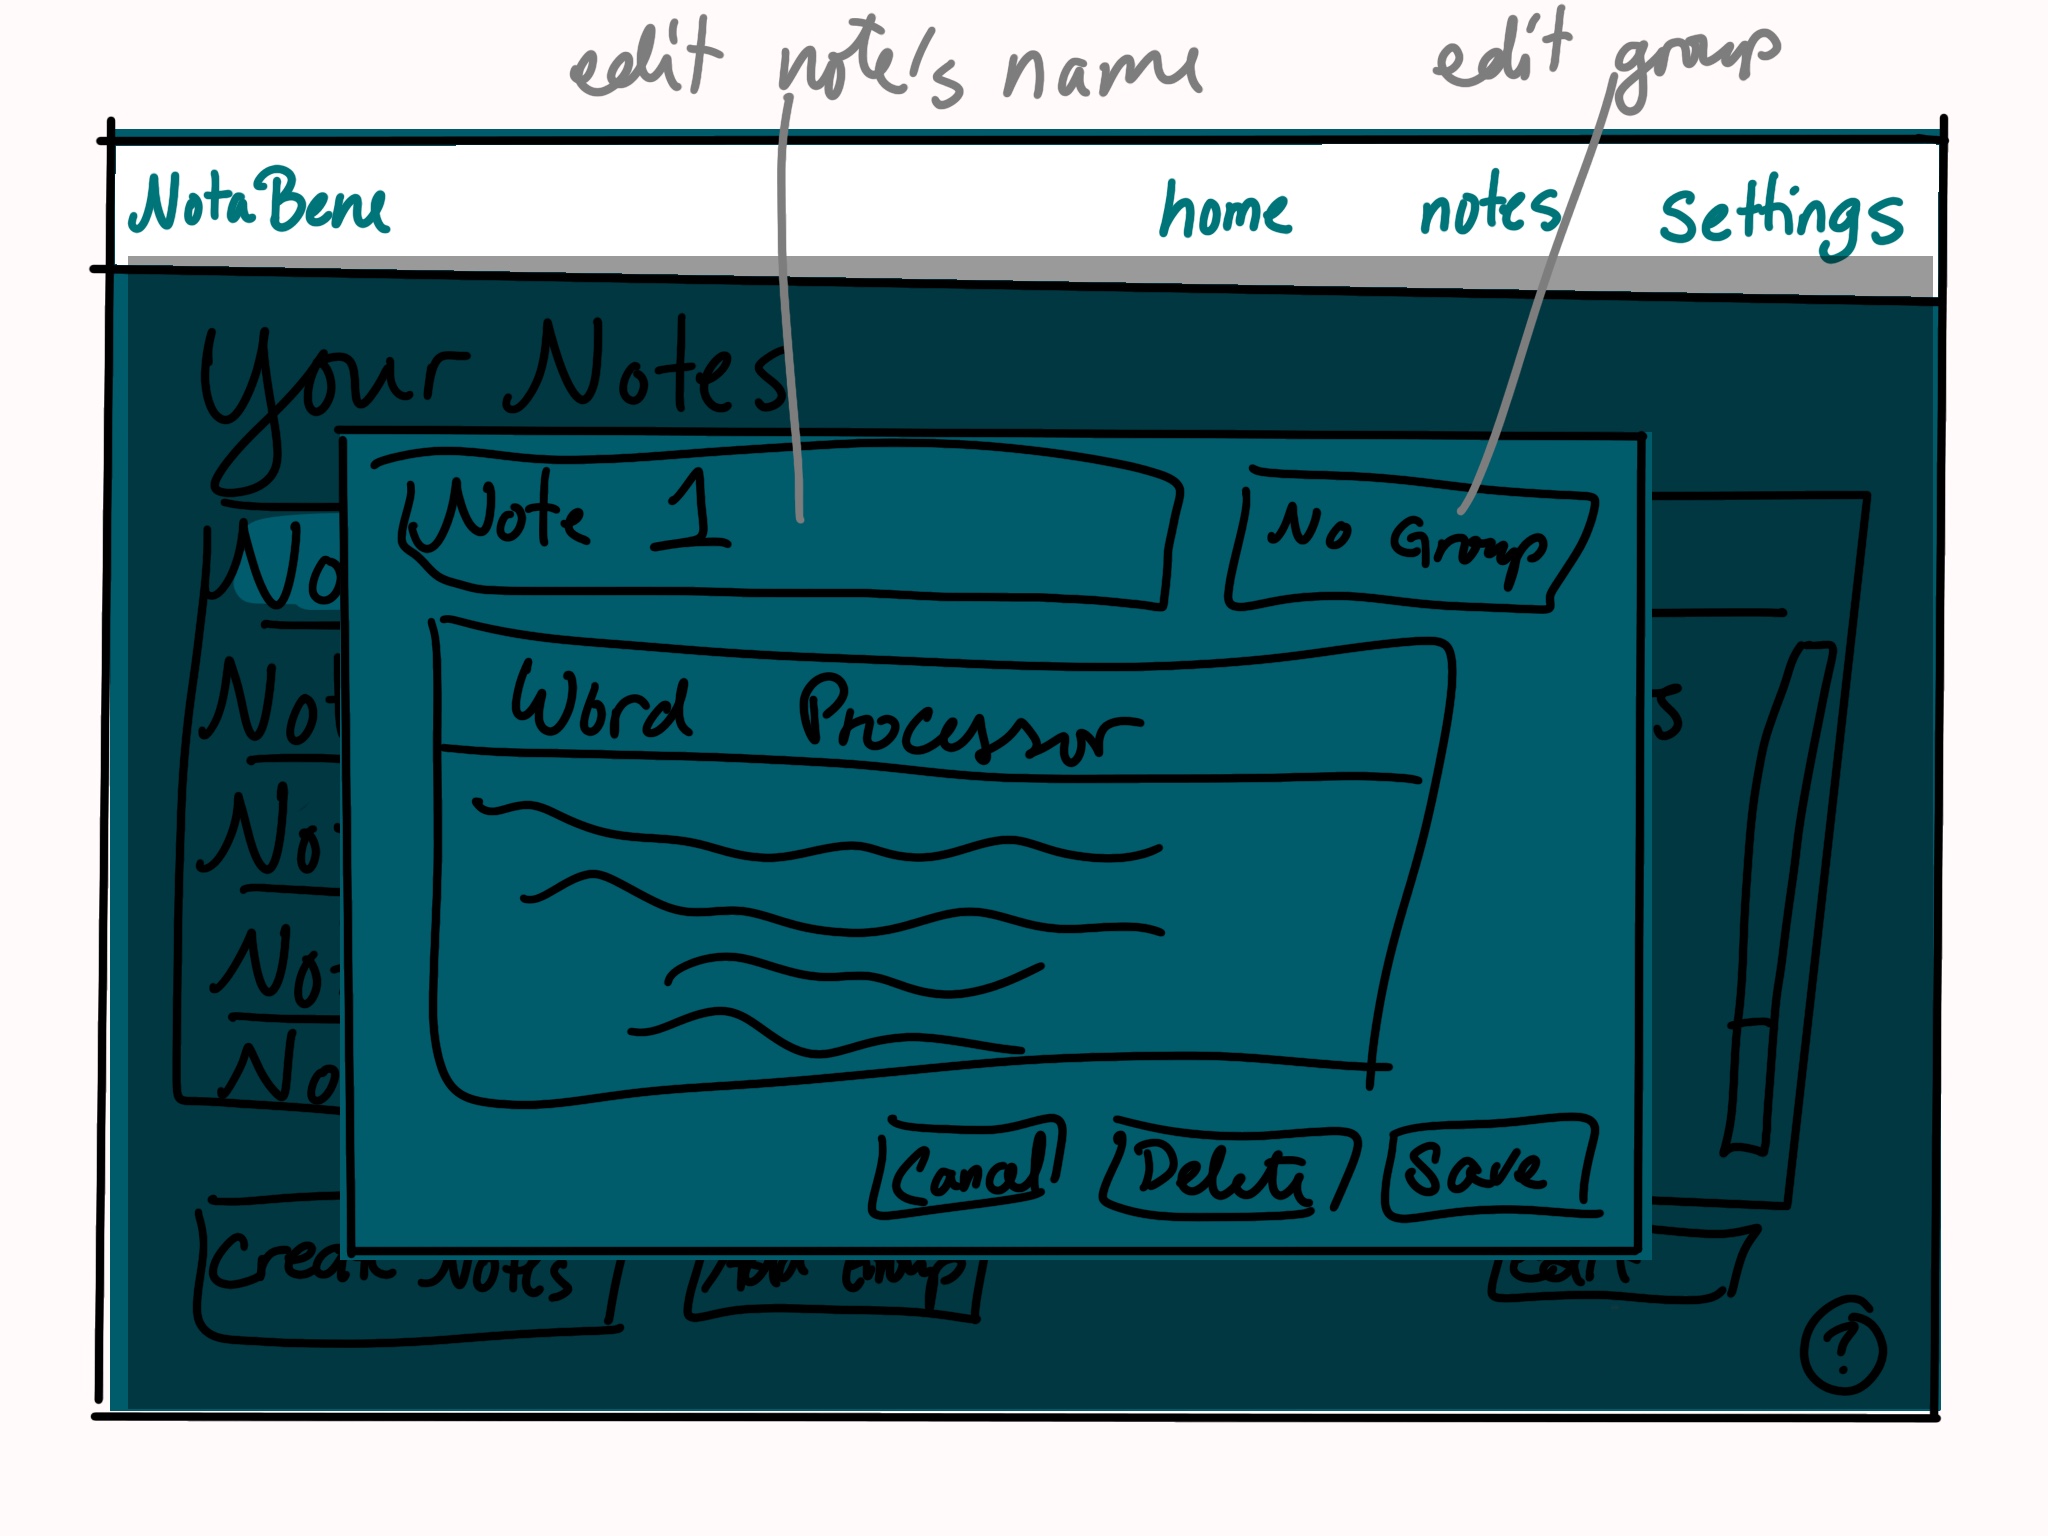 edit note's name edit group
NotaBene home notes settings
Your Notes
Note 1 No Group
No
Not
Word Processor
s
No
No
No
Cancel Delete Save
Create Notes Add Group Edit
?